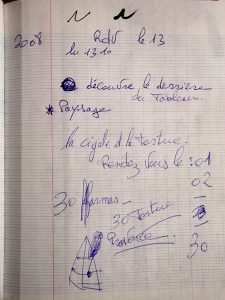 2008 RdV le 13
lu 13 10
découvre le derrière
du Tableau.
* Paysage
la cigale et la tortue
Rendez Vous le : 01
02
30
30 Tortue
Provence
30